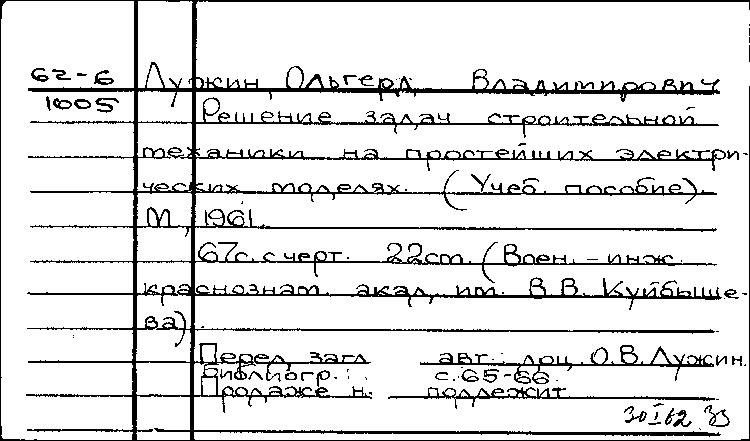 62-6 Лужин, Ольгерд Владимирович
1005 Решение задач строительной
механики на простейших электри-
ческих моделях. (Учеб. пособие).
М, 1961.
67с. с черт. 22см. (Воен.-инж.
краснознам. акад, им. В.В. Куйбыше-
ва).
Перед загл авт.: доц. О.В. Лужин.
Библиогр.: с.65-66.
Продаже н. подлежит
30 I 62